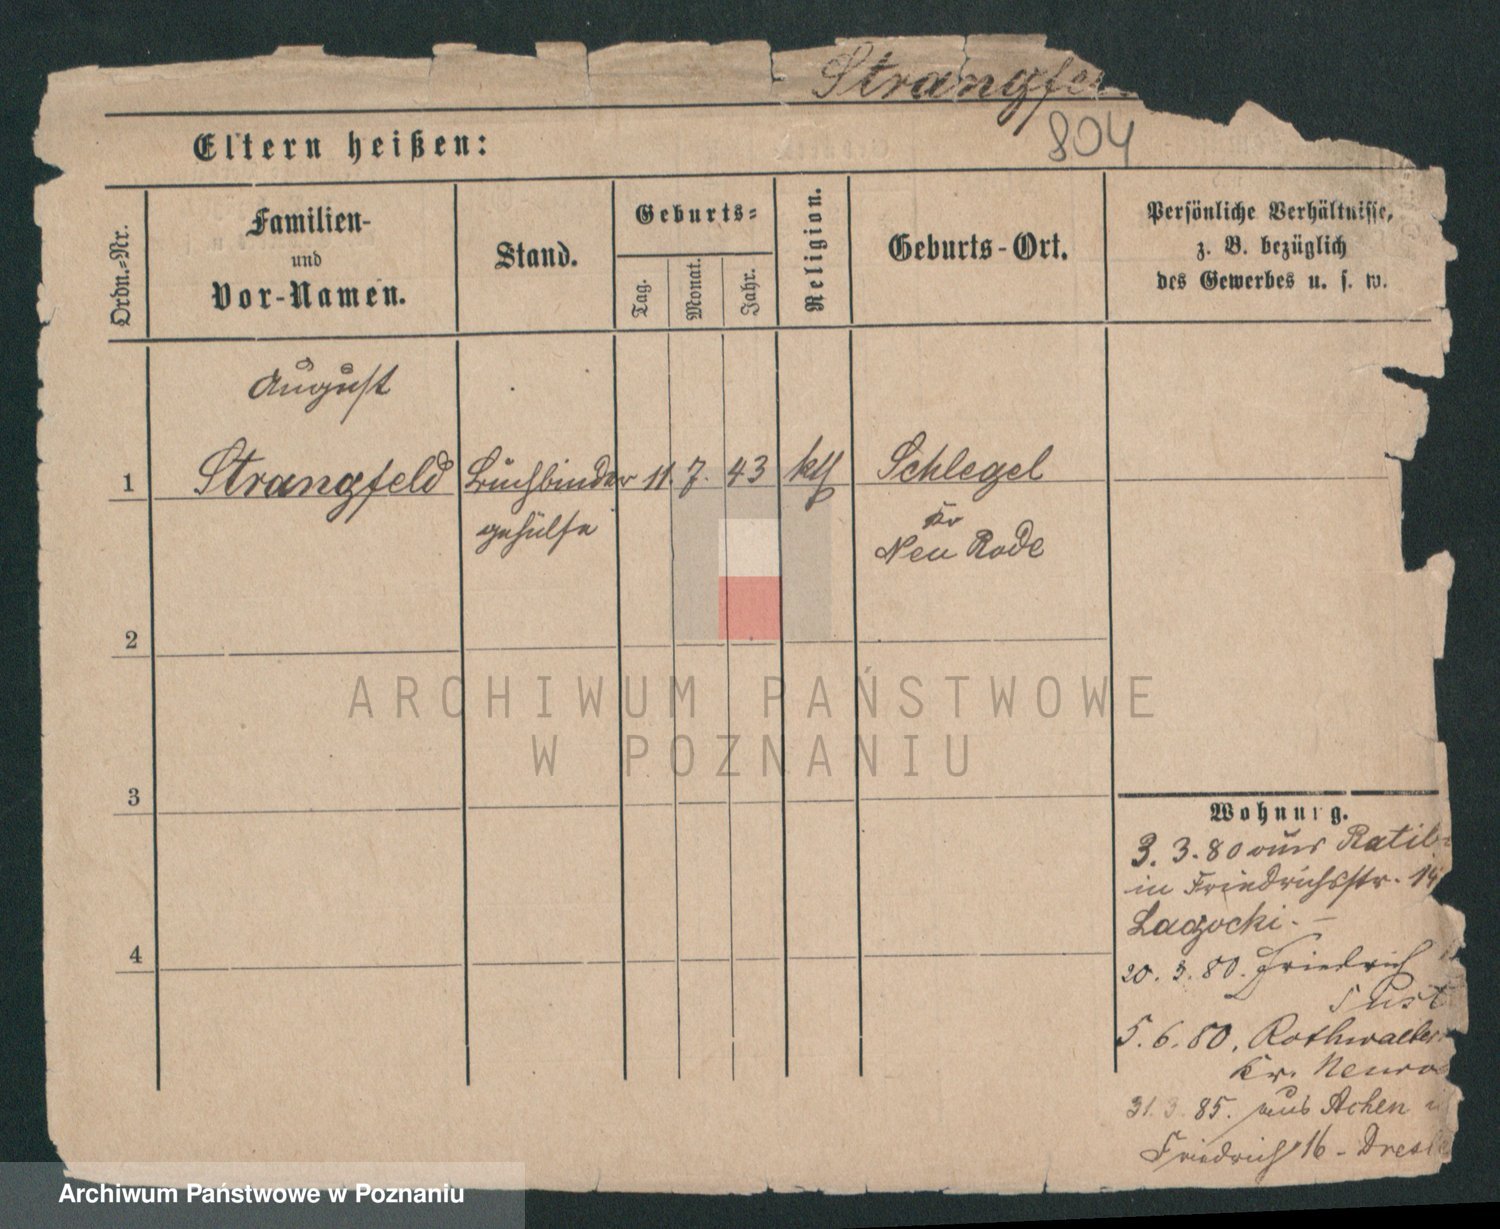 Strangfe
804
Eltern heißen:
Ordn.-Nr.
Familien-
und
Vor-Namen.
Stand.
Geburts-
Tag.
Monat.
Jahr.
Religion.
Geburts-Ort.
Persönliche Verhältnisse,
z. B. bezüglich
des Gewerbes u. s. w.
August
1 Strangfeld Buchbinder 11. 7. 43 kth Schlegel
gehülfe Kr
Neu Rode
2
3
4
Wohnung.
3. 3. 80 aus Ratib
in Friedrichsstr. 14
Lagocki. –
20. 3. 80. Friedrich
Just
5. 6. 80. Rothwalter
Kr. Neuro
31. 3. 85. aus Achen
Friedrich 16 - Dresd
ARCHIWUM PAŃSTWOWE
W POZNANIU
Archiwum Państwowe w Poznaniu